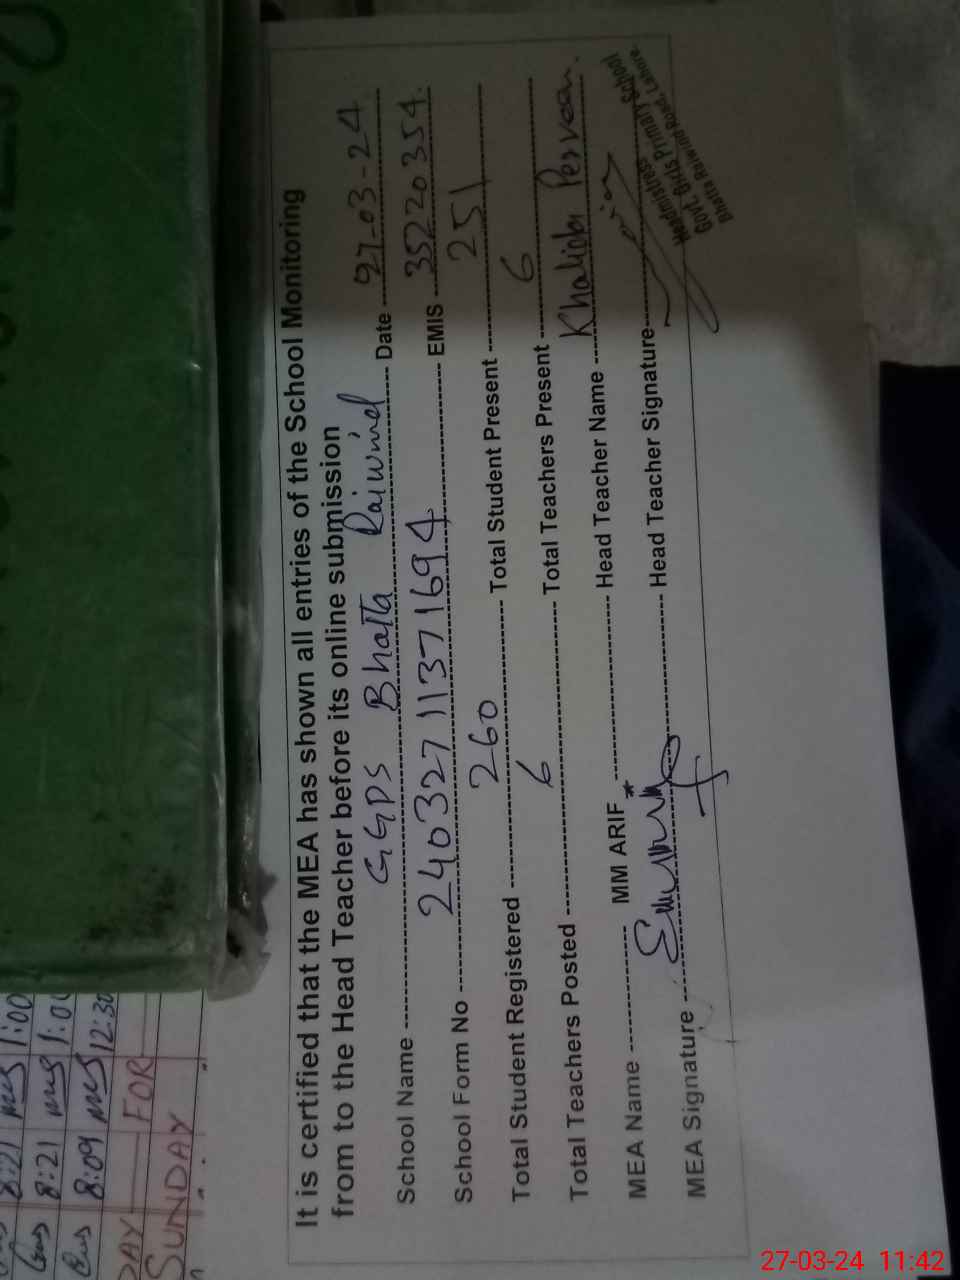 It is certified that the MEA has shown all entries of the School Monitoring
from to the Head Teacher before its online submission
School Name GGPS Bhatta Raiwind Date 27-03-24
School Form No 24032711371694 EMIS 35220354
Total Student Registered 260 Total Student Present 251
Total Teachers Posted 6 Total Teachers Present 6
MEA Name MM ARIF * Head Teacher Name Khalida Perveen.
MEA Signature Head Teacher Signature
Headmistress
Govt. Girls Primary School
Bhatta Raiwind Road, Lahore.
8:21 1:00
8:21
8:09 12:30
FOR
SUNDAY
27-03-24 11:42